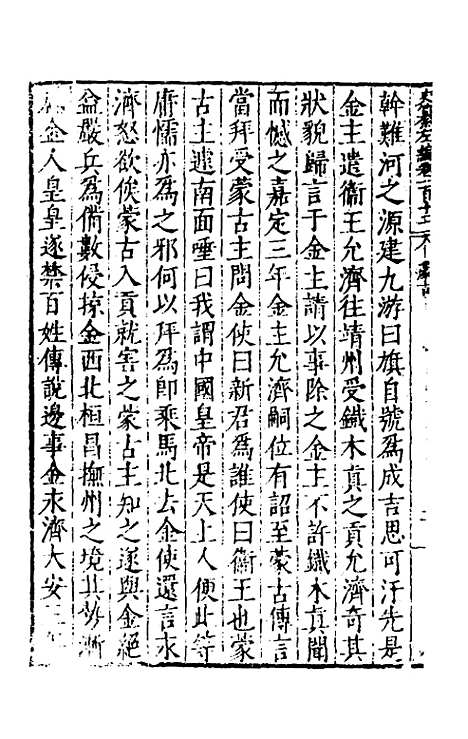 幹難河之源建九游曰旗自號爲成吉思可汗先是
金主遣衞王允濟徃靖州受鐵木真之貢允濟奇其
狀貌歸言于金主請以事除之金主不許鐵木真聞
而憾之嘉定三年金主允濟嗣位有詔至蒙古傳言
當拜受蒙古主問金使曰新君爲誰使曰衞王也蒙
古主遽南面唾曰我謂中國皇帝是天上人便此等
庸懦亦爲之邪何以拜爲即乘馬北去金使還言永
濟怒欲俟蒙古入貢就害之蒙古主知之遂與金絕
益嚴兵爲備數侵掠金西北桓昌撫州之境其勢漸
金人皇皇遂禁百姓傳說邊事金永濟大安三